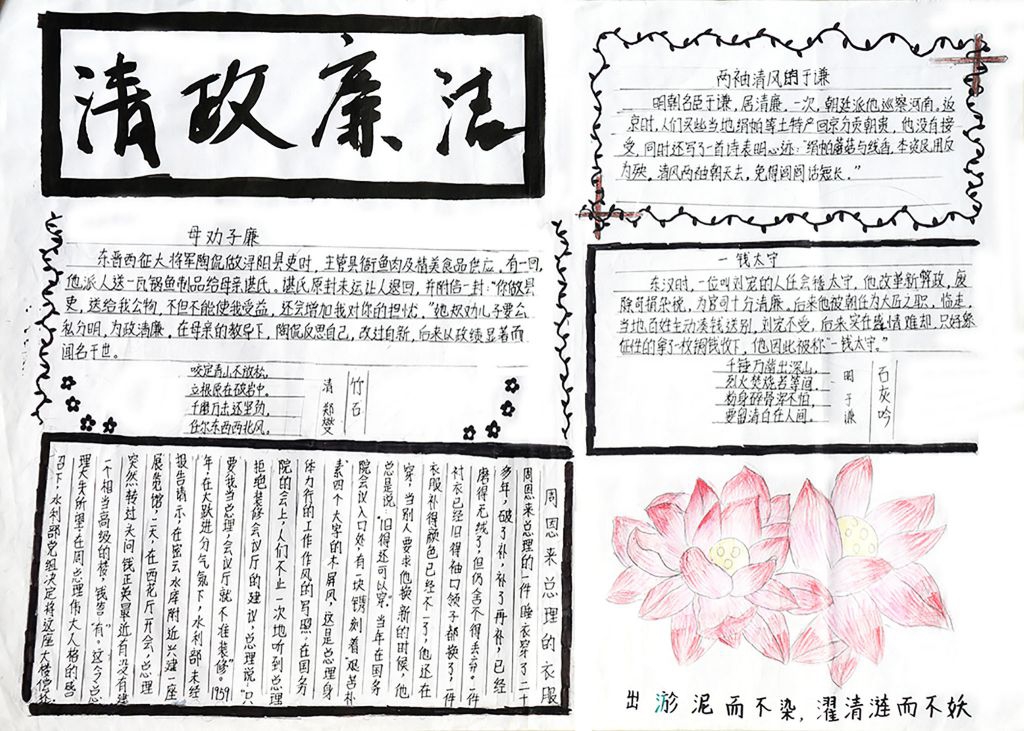 清政廉洁
母劝子廉
东晋西征大将军陶侃做浔阳县吏时，主管县衙鱼肉及精美食品供应，有一回，
他派人送一瓦锅鱼制品给母亲谌氏。谌氏原封未运让人退回，并附信一封："你做县
吏，送给我公物，不但不能使我受益，还会增加我对你的担忧，"她 劝儿子要公
私分明，为政清廉，在母亲的教导下，陶侃反思自己，改过自新，后来以政绩显著而
闻名于世。
咬定青山不放松，
立根原在破岩中。
千磨万击还坚劲，
任尔东西南北风。
清 郑燮
竹石
周恩来总理的衣服
周恩来总理的一件睡衣穿了二十
多年，破了补，补了再补，已经
磨得无绒了，但仍舍不得丢弃。一件
衬衣已经旧得袖口领子都换了，一件
衣服补得颜色已经不一了，他还在
穿，当别人要求他换新的时候，他
总是说："旧得还可以穿。当年在国务
院会议入口处，有一块镌刻着"艰苦朴
素四个大字的木屏风，这是总理身
体力行的工作作风的写照。在国务
院的会上，人们不止一次地听到总理
拒绝装修会议厅的建议，总理说："只
要我当总理，会议厅就不准装修"。1959
年，在大跃进分气氛下，水利部未经
报告请示，在密云水库附近兴建一座
展览馆，一天，在西花厅开会，总理
突然转过头问钱正英最近有没有建
一个相当高级的楼，钱答"有。这令
理大失所望，在周总理伟大人格的感
召下，水利部党组决定将这座大楼偿还
两袖清风的于谦
明朝名臣于谦，居清廉，一次，朝廷派他巡察河南。返
京时，人们买些当地绢帕等土特产回京分贡朝贵，他没有接
受，同时还写了一首诗表明心迹："绢帕蘑菇与线香，本资民用反
为殃。清风两袖朝天去，免得闾阎话短长。"
一钱太守
东汉时，一位叫刘宠的人任会稽太守，他改革新算政，废
除苛捐杂税，为官司十分清廉，后来他被朝任为大匠之职，临走，
当地百姓主动凑钱送别，刘宠不受，后来实在盛情难却，只好象
征性的拿了一枚铜钱收下，他因此被称"一钱太守。"
千锤万凿出深山，
烈火焚烧若等闲，
粉身碎骨浑不怕，
要留清白在人间。
明 于谦
石灰吟
出淤泥而不染，濯清涟而不妖